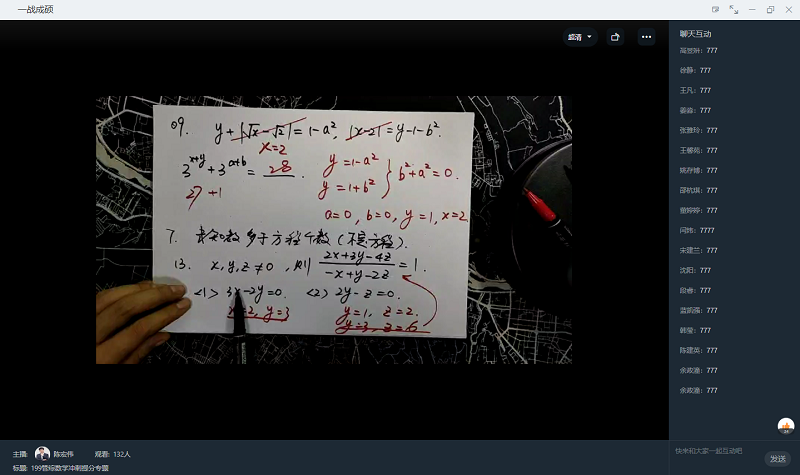 一战成硕
超清
聊天互动
高昱琳: 777
徐静: 777
王凡: 777
姜淼: 777
张雅玲: 777
王馨苑: 777
姚存博: 777
邵杭琪: 777
董婷婷: 777
闫炜: 7777
宋建兰: 777
沈阳: 777
段睿: 777
韩莹: 777
陈建英: 777
余政潞: 777
余政潞: 777
09. y + |√x − √2| = 1−a², |x−2| = y−1−b².
x=2
3^(x+y) + 3^(a+b) = 28.
27 + 1
y = 1−a²
y = 1+b²
b²+a²=0.
a=0, b=0, y=1, x=2
7. 未知数多于方程个数(不定方程).
13. x, y, z ≠ 0, 则 (2x+3y−4z)/(−x+y−2z) = 1.
<1> 3x−2y=0. <2> 2y−z=0.
x=2, y=3 y=1, z=2.
y=3, z=6
主播: 陈宏伟 观看: 132人
标题: 199管综数学冲刺提分专题
快来和大家一起互动吧
发送